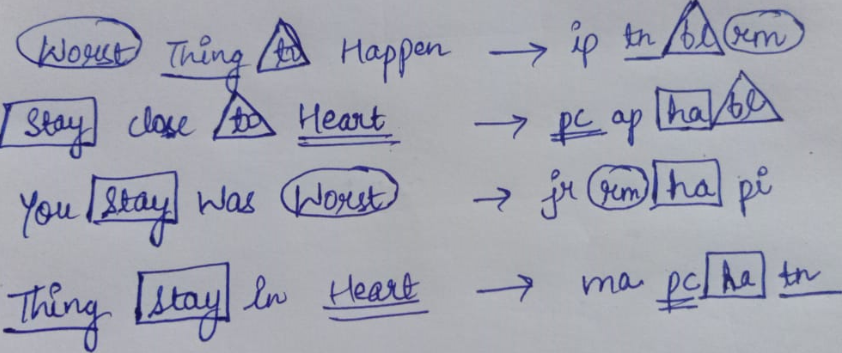 Worst Thing to Happen → ip tn bl rm
Stay close to Heart → pc ap ha bl
You Stay Was Worst → jr rm ha pi
Thing Stay In Heart → ma pc ha tn